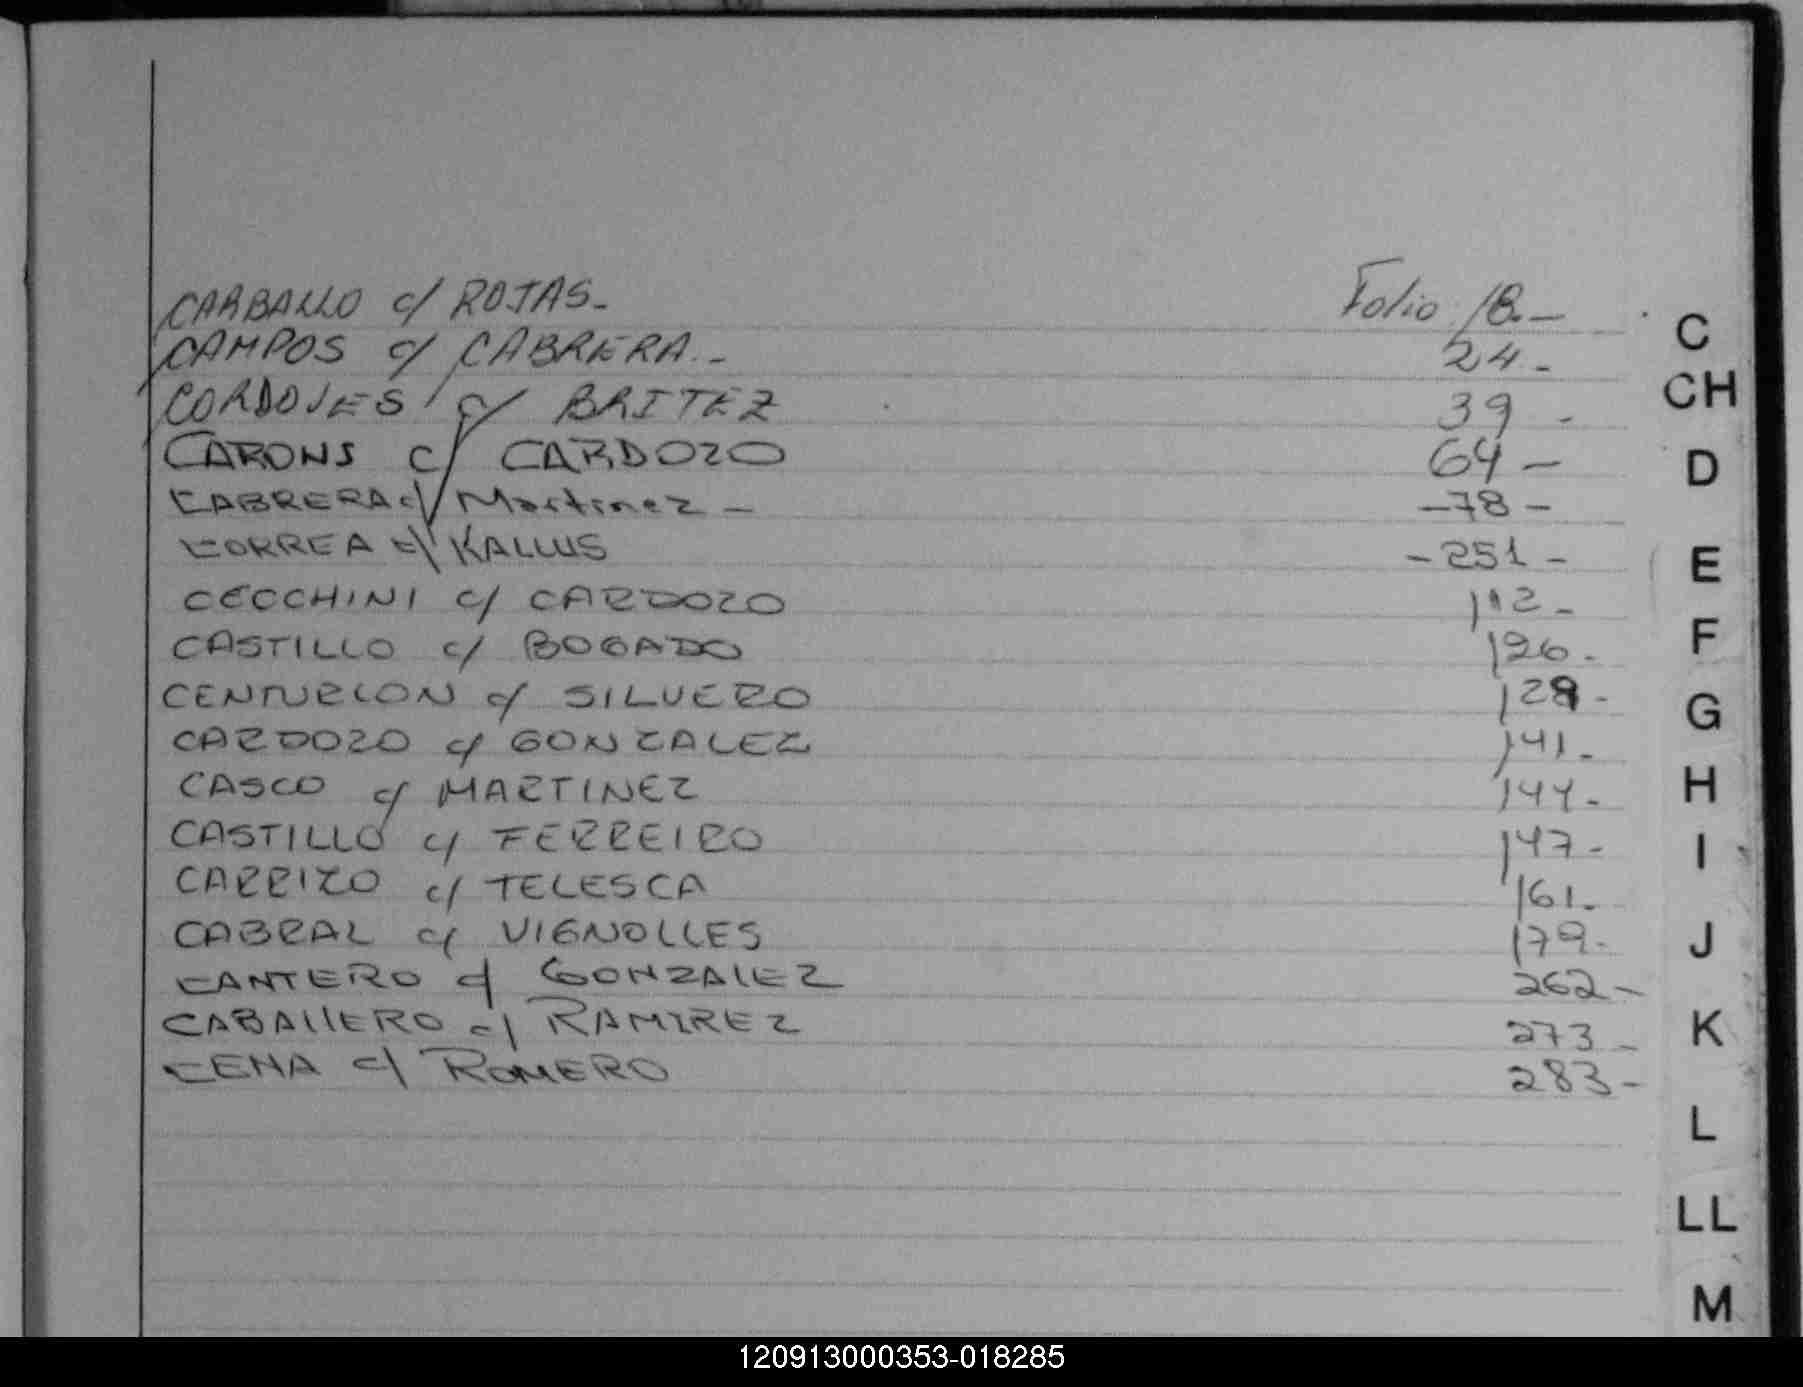 CARBALLO c/ ROJAS.- Folio 18.-
CAMPOS c/ CABRERA.- 24.-
CORDOVES c/ BRITEZ 39 -
CARONS c/ CARDOZO 64 -
CABRERA c/ Martinez - -78-
CORREA c/ KALLUS -251-
CECCHINI c/ CARDOZO 112-
CASTILLO c/ BOGADO 126.-
CENTURION c/ SILVERO 128-
CARDOZO c/ GONZALEZ 141.-
CASCO c/ MARTINEZ 144.-
CASTILLO c/ FERREIRO 147.-
CARRIZO c/ TELESCA 161.-
CABRAL c/ VIGNOLLES 179.-
CANTERO c/ GONZALEZ 262-
CABALLERO c/ RAMIREZ 273-
CENA c/ ROMERO 283-
C
CH
D
E
F
G
H
I
J
K
L
LL
M
120913000353-018285